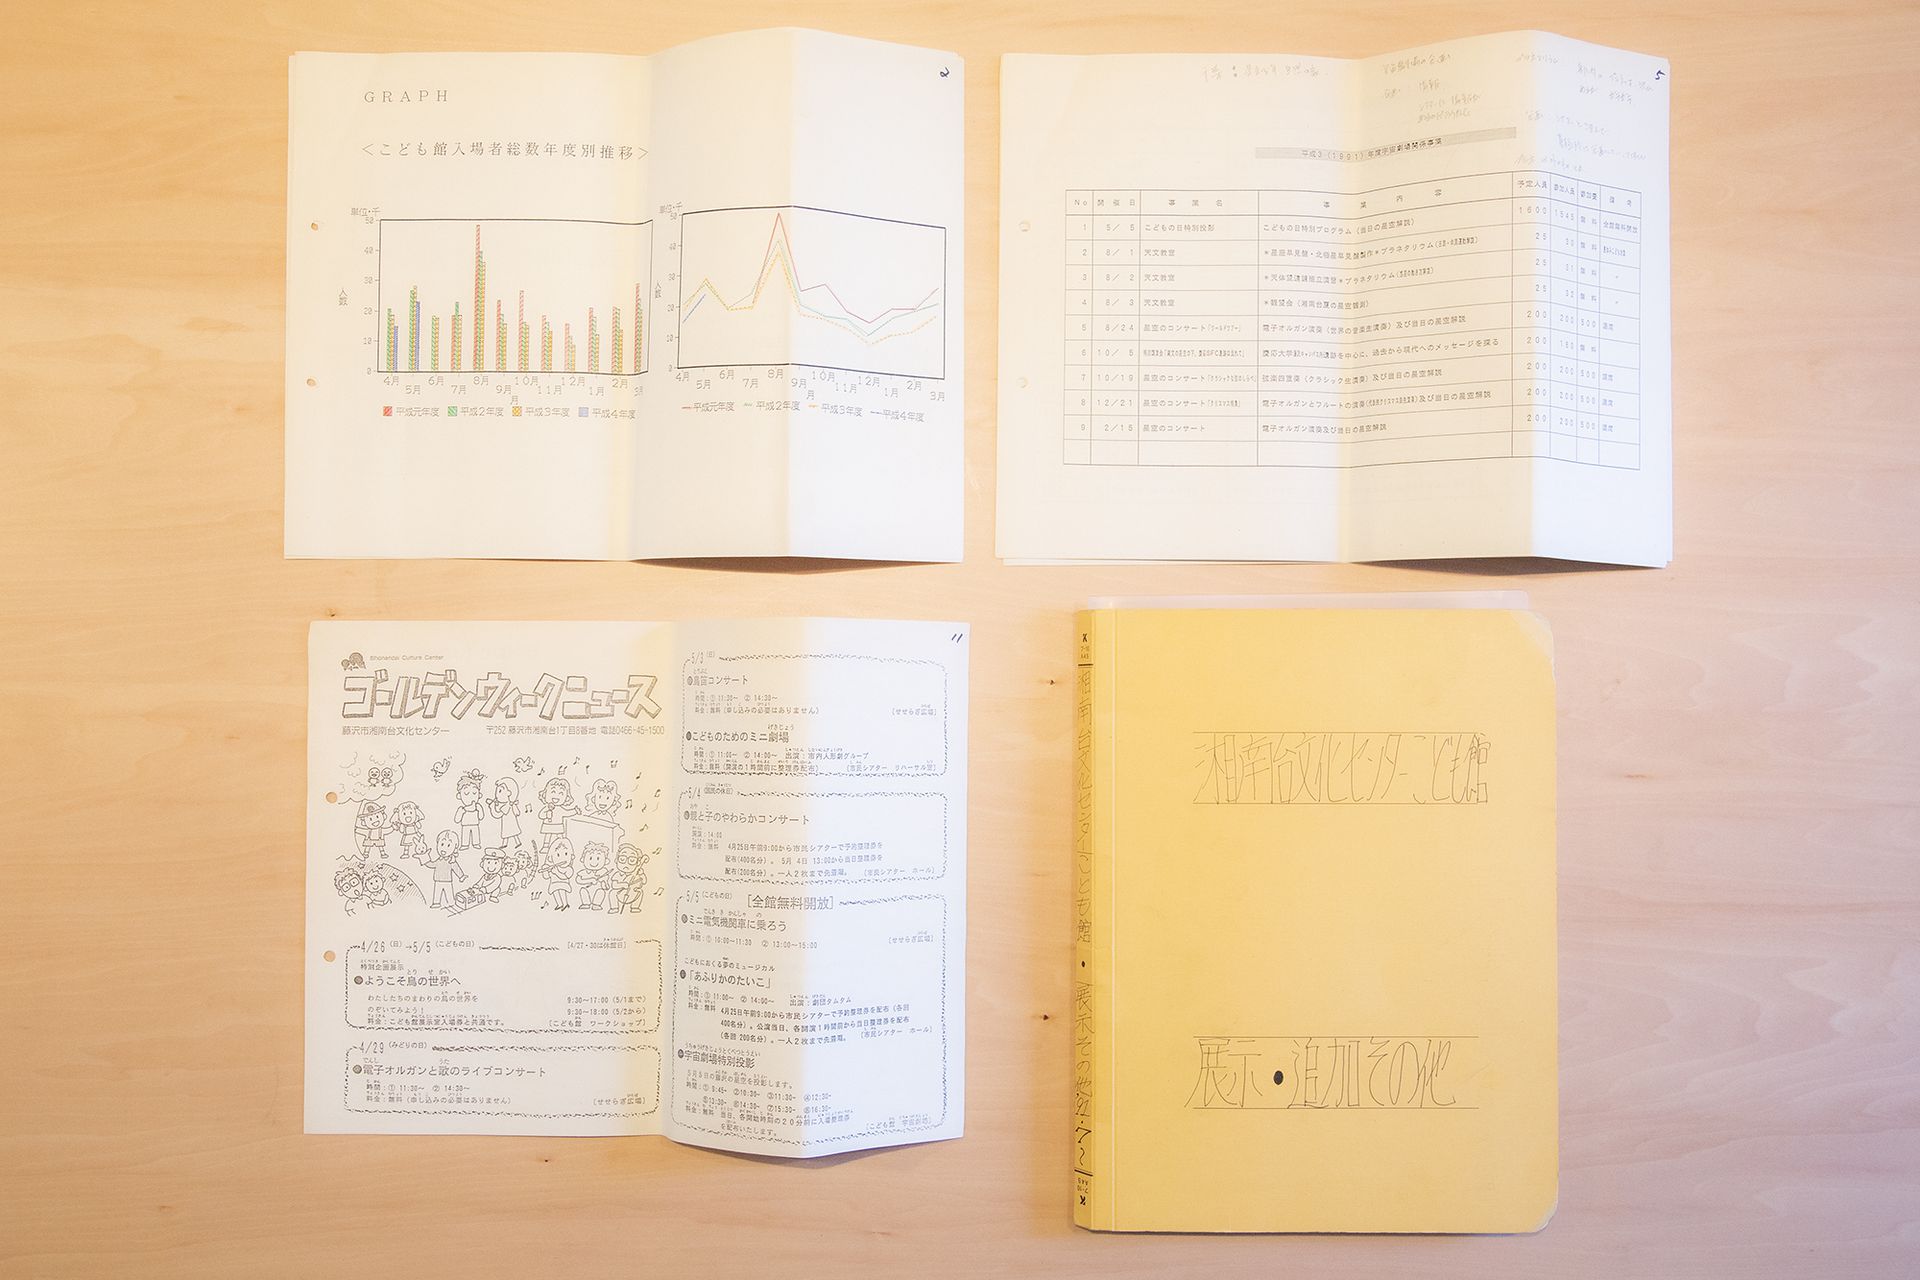 2
GRAPH
<こども館入場者総数年度別推移>
単位・千
50
40
30
20
10
0
人数
4月 5月 6月 7月 8月 9月 10月 11月 12月 1月 2月 3月
平成元年度 平成2年度 平成3年度 平成4年度
単位・千
50
40
30
20
10
0
人数
4月 5月 6月 7月 8月 9月 10月 11月 12月 1月 2月 3月
平成元年度 平成2年度 平成3年度 平成4年度
5
平成3(1991)年度宇宙劇場関係事業
No 開催日 事業名 事業内容 予定人員 参加人員 参加費 備考
1 5/5 こどもの日特別投影 こどもの日特別プログラム(当日の星空解説) 1600 1545 無料 全館無料開放
2 8/1 天文教室 *星座早見盤・北極星早見盤製作*プラネタリウム 25 30 無料
3 8/2 天文教室 *天体望遠鏡組立演習*プラネタリウム 25 31 無料 〃
4 8/3 天文教室 *観望会(湘南台夏の星空観測) 25 32 無料 〃
5 8/24 星空のコンサート「ワールドツアー」 電子オルガン演奏(世界の音楽生演奏)及び当日の星空解説 200 200 500 満席
6 10/5 慶応大学湘南キャンパス内遺跡を中心に、過去から現代へのメッセージを探る 200 160 無料
7 10/19 星空のコンサート「クラシックな秋のしらべ」 弦楽四重奏(クラシック生演奏)及び当日の星空解説 200 200 500 満席
8 12/21 星空のコンサート「クリスマス特集」 電子オルガンとフルートの演奏 及び当日の星空解説 200 200 500 満席
9 2/15 星空のコンサート 電子オルガン演奏及び当日の星空解説 200 200 500 満席
11
Shonandai Culture Center
ゴールデンウィークニュース
藤沢市湘南台文化センター 〒252 藤沢市湘南台1丁目8番地 電話0466-45-1500
4/26(日)→5/5(こどもの日) [4/27・30は休館日]
特別企画展示
●ようこそ鳥の世界へ
わたしたちのまわりの鳥の世界を
のぞいてみよう!
9:30~17:00(5/1まで)
9:30~18:00(5/2から)
料金:こども館展示室入場券と共通です。 [こども館 ワークショップ]
4/29(みどりの日)
●電子オルガンと歌のライブコンサート
時間:① 11:30~ ② 14:30~
料金:無料(申し込みの必要はありません) [せせらぎ広場]
5/3(日)
●鳥笛コンサート
時間:① 11:30~ ② 14:30~
料金:無料(申し込みの必要はありません) [せせらぎ広場]
●こどものためのミニ劇場
時間:① 11:00~ ② 14:00~ 出演:市内人形劇グループ
料金:無料(開演の1時間前に整理券配布) [市民シアター リハーサル室]
5/4(国民の休日)
●親と子のやわらかコンサート
開演:14:00
料金:無料 4月25日午前9:00から市民シアターで予約整理券を
配布(400名分)。5月4日 13:00から当日整理券を
配布(200名分)。一人2枚まで先着順。 [市民シアター ホール]
5/5(こどもの日) [全館無料開放]
●ミニ電気機関車に乗ろう
時間:① 10:00~11:30 ② 13:00~15:00 [せせらぎ広場]
こどもにおくる夢のミュージカル
●「あふりかのたいこ」
時間:① 11:00~ ② 14:00~ 出演:劇団タムタム
料金:無料 4月25日午前9:00から市民シアターで予約整理券を配布(各回
400名分)。公演当日、各開演1時間前から当日整理券を配布
(各回 200名分)。一人2枚まで先着順。 [市民シアター ホール]
●宇宙劇場特別投影
5月5日の藤沢の星空を投影します。
時間:① 9:45~ ②10:30~ ③11:30~ ④12:30~
⑤13:30~ ⑥14:30~ ⑦15:30~ ⑧16:30~
料金:無料 当日、各開始時刻の20分前に入場整理券
を配布いたします。 [こども館 宇宙劇場]
湘南台文化センターこども館
展示・追加その他
湘南台文化センターこども館・展示その他